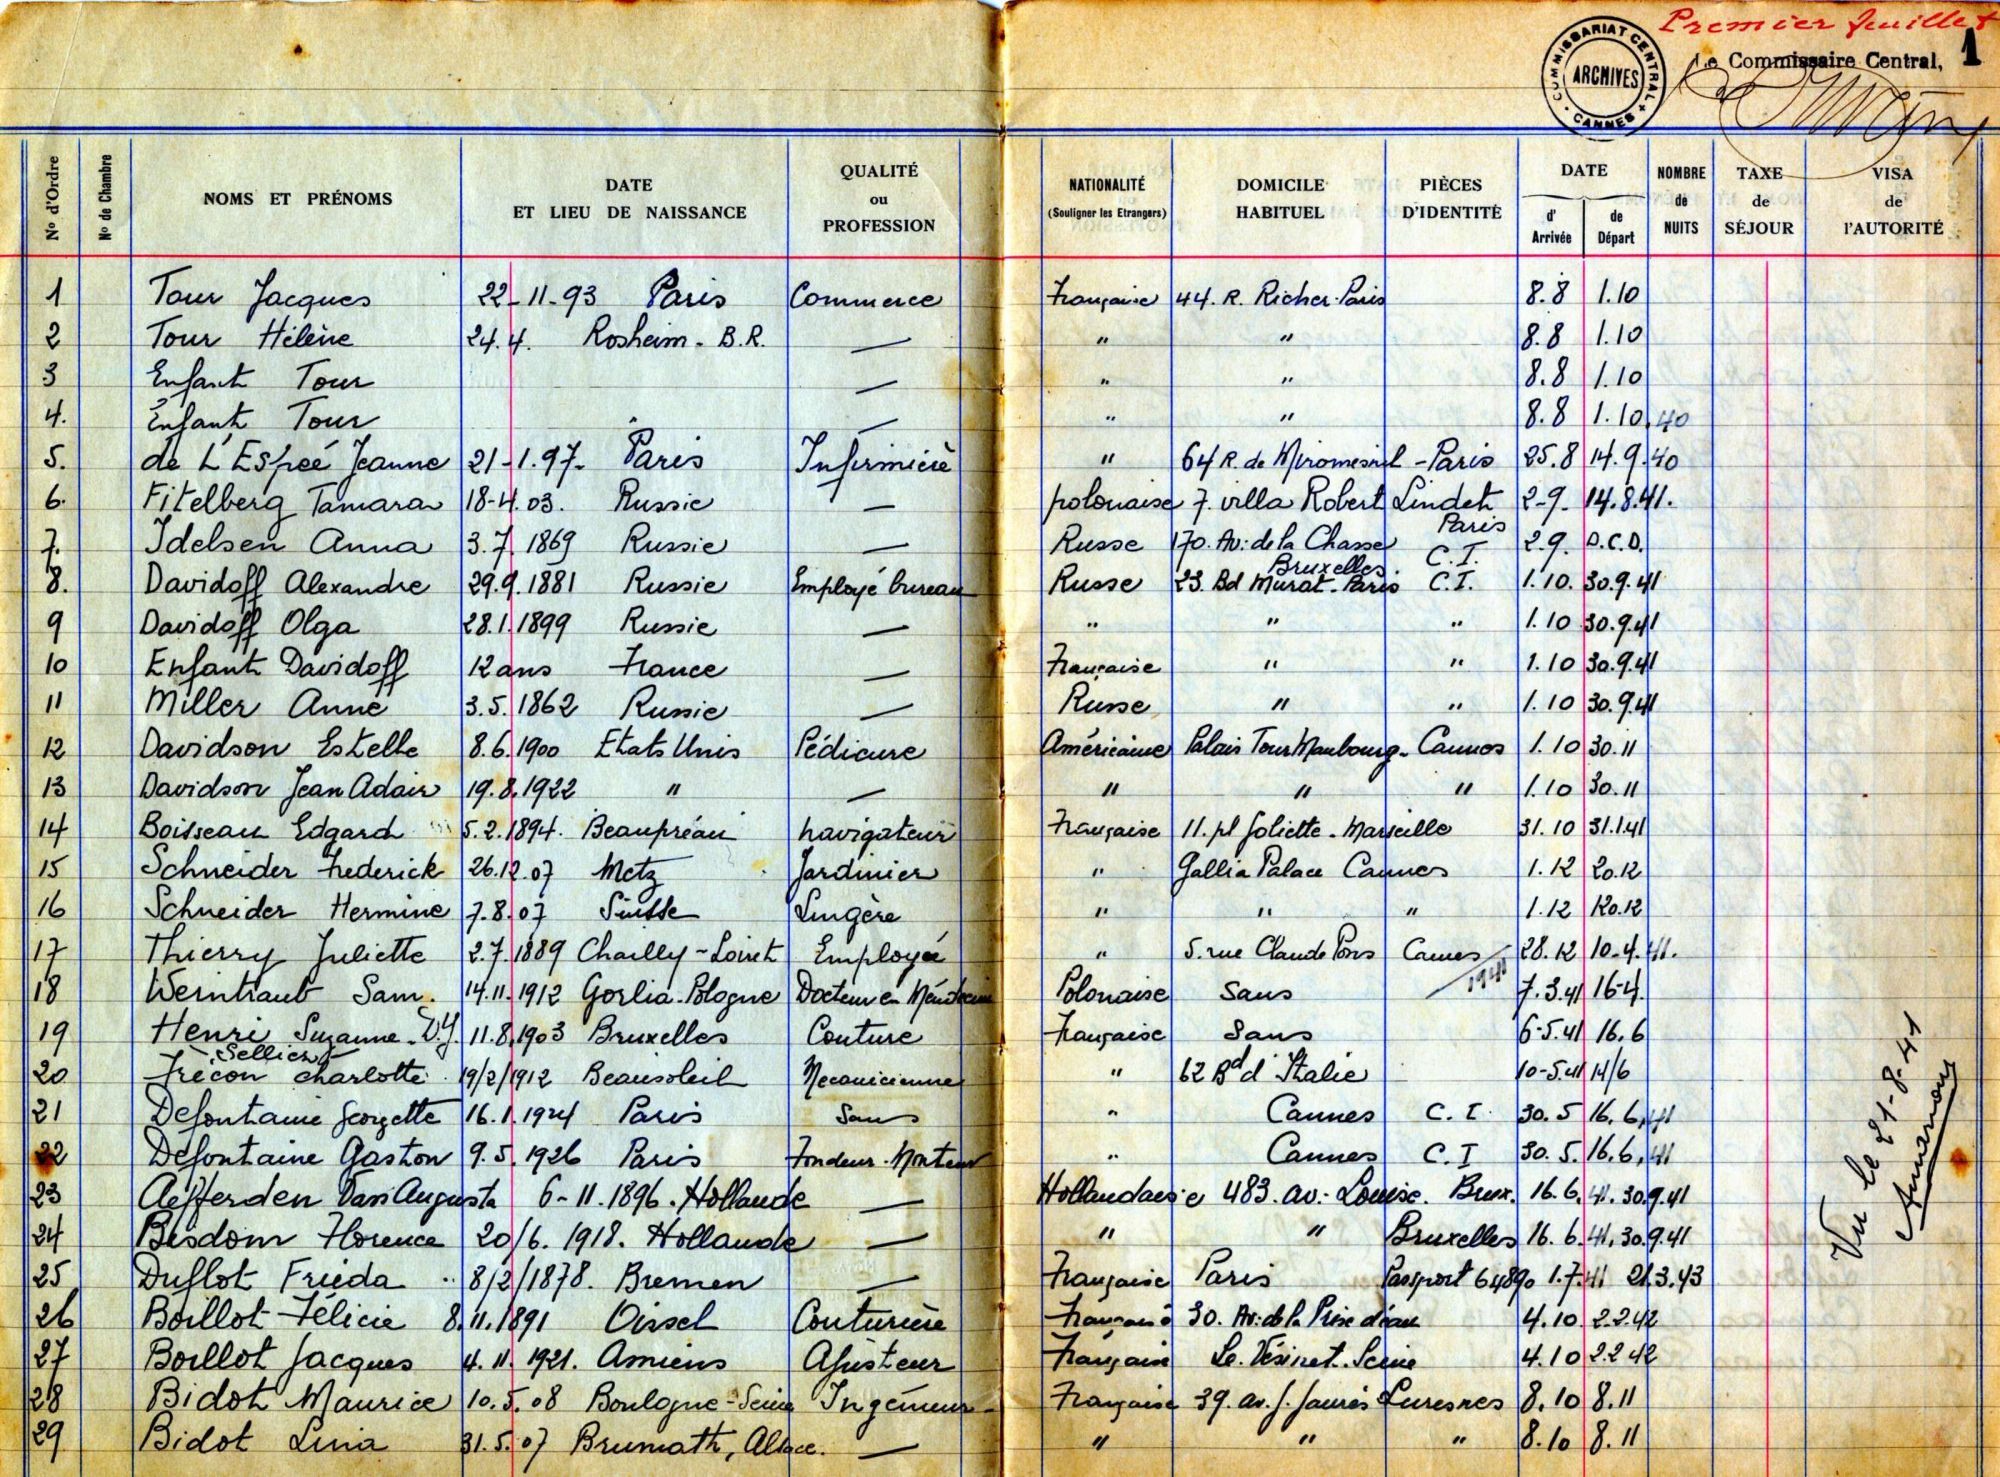 Premier feuillet
COMMISSARIAT CENTRAL ARCHIVES CANNES
Le Commissaire Central, 1
N° d'Ordre N° de Chambre NOMS ET PRÉNOMS DATE ET LIEU DE NAISSANCE QUALITÉ ou PROFESSION NATIONALITÉ (Souligner les Etrangers) DOMICILE HABITUEL PIÈCES D'IDENTITÉ DATE d'Arrivée de Départ NOMBRE de NUITS TAXE de SÉJOUR VISA de l'AUTORITÉ
1 Tour Jacques 22-11-93 Paris Commerce Française 44. R. Richer. Paris 8.8 1.10
2 Tour Hélène 24.4. Rosheim - B.R. — " " 8.8 1.10
3 Enfant Tour — " " 8.8 1.10
4. Enfant Tour — " " 8.8 1.10.40
5. de L'Espeé Jeanne 21-1.97- Paris Infirmière " 64 R. de Miromesnil - Paris 25.8 14.9.40
6. Fitelberg Tamara 18-4.03. Russie — polonaise 7. villa Robert Lindet Paris 2-9. 14.8.41.
7. Idelsen Anna 3.7. 1869 Russie — Russe 170. Av: de la Chasse Bruxelles. C.I. 2.9. D.C.D.
8. Davidoff Alexandre 29.9.1881 Russie Employé bureau Russe 23. Bd Murat - Paris C.I. 1.10. 30.9.41
9 Davidoff Olga 28.1.1899 Russie — " " " 1.10 30.9.41
10 Enfant Davidoff 12 ans France — Française " " 1.10 30.9.41
11 Miller Anne 3.5.1862 Russie — Russe " " 1.10 30.9.41
12 Davidson Estelle 8.6.1900 Etats Unis Pédicure Américaine Palais Tour Maubourg - Cannes 1.10 30.11
13 Davidson Jean Adair 19.8.1922 " — " " " 1.10 30.11
14 Boisseau Edgard 5.2.1894. Beaupréau navigateur Française 11. pl Joliette - Marseille 31.10 31.1.41
15 Schneider Frederick 26.12.07 Metz Jardinier " Gallia Palace Cannes 1.12 20.12
16 Schneider Hermine 7.8.07 Suisse Lingère " " " 1.12 20.12
17 Thierry Juliette 2.7.1889 Chailly - Loiret Employée " 5. rue Claude Pons Cannes 28.12 10-4.41.
1941
18 Weintraub Sam. 14.11.1912 Gorlia - Pologne Docteur en Médecine Polonaise Sans 7.3.41 16-4.
19 Henri Suzanne - D.Y. 11.8.1903 Bruxelles Couture Française Sans 6-5.41 16.6
20 Frècon Sellier charlotte 19/2/1912 Beausoleil Mecanicienne " 62 Bd d'Italie 10-5.41 14/6
21 Defontaine Georgette 16.1.1924 Paris Sans " Cannes C.I. 30.5 16.6.41
22 Defontaine Gaston 9.5.1926 Paris Fondeur - Monteur " Cannes C.I 30.5. 16.6.41
23 Aefferden Van Augusta 6-11.1896. Hollande — Hollandaise 483. av: Louise. Brux. 16.6.41. 30.9.41
24 Besdom Florence 20/6.1918. Hollande — " " Bruxelles 16.6.41. 30.9.41
25 Duflot Frieda 8/2/1878. Bremen — Française Paris Passport 64890 1.7.41 21.3.43
26 Boillot Félicie 8.11.1891 Oissel Couturière Française 30. Av: de la Prise d'eau 4.10 2.2.42
27 Boillot Jacques 4.11.1921. Amiens Ajusteur Française Le Vésinet - Seine 4.10 2.2.42
28 Bidot Maurice 10.5.08 Boulogne - Seine Ingénieur Française 39. av. J. Jaurès Suresnes 8.10 8.11
29 Bidot Lina 31.5.07 Brumath, Alsace. — " " " 8.10 8.11
Vu le 21-8-41